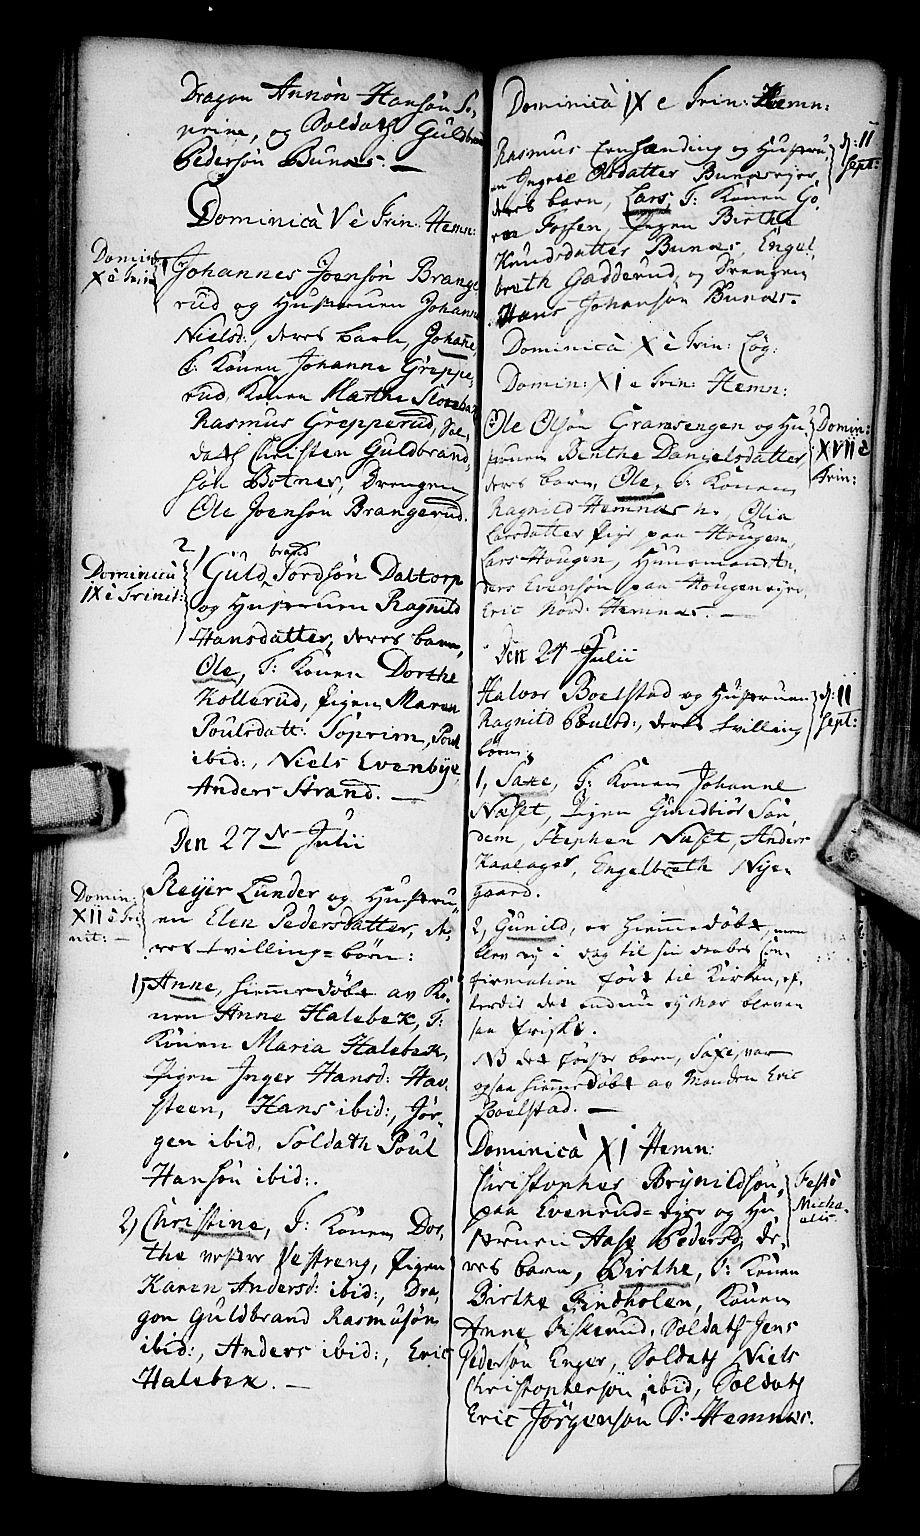 Dragon Annon Hansøn So-
prine, og Soldath Guldbran
Pedersøn Bunæs. —
Dominicâ V è Trin: Hemn:
Domin:
X è Trin:
Johannes Joensøn Brange
rud og Hustruen Johanne
Nielsd:, deres barn, Johañe,
T: Konen Johanne Greppe-
rud, Konen Marthe
Rasmus Grepperud, Sol-
dath Christen Guldbrand,
søn Botner, Drengen
Ole Joensøn Brangerud.
Dominicâ
IX è Trinit:
brand
Guld Tordsøn Daltorp
og Hustruen Ragnild
Hansdatter, deres barn,
Ole, T: Konen Dorthe
Kollerud, Pigen Maren
Poulsdatt: Soprim, Poul
ibid:, Niels Evenbye,
Anders Strand. —
Den 27de Julii
Domin:
XII è Tri-
nit: —
Reyer Lunder og Hustru-
en Elen Pedersdatter, de-
res tvilling=børn:
1) Anne, hiemmedøbt av Ko-
nen Anne Halebek, T:
Konen Maria Halebek,
Pigen Inger Hansd: Hav-
steen, Hans ibid:, Jør-
gen ibid, Soldath Poul
Hansøn ibid:.
2) Christine, T: Konen Dor-
the vestre Sestreng, Pigen
Karen Andersd: ibid:, Dra-
gon Guldbrand Rasmusøn
ibid:, Anders ibid:, Eric
Halebek. —
Dominicâ IX è Trin: Hemn:
Rasmus og Hustru
en Ingrie Olsdatter Bunæseyer,
deres barn, Lars, T: Konen Go-
roe Fossen, Pigen Birthe
Knudsdatter Bunæs, Engel-
breth Gadderud, og Drengen
Hans Johansøn Bunæs.
d: 11
Sept:
Dominicâ X è Trin: Løg:
Domin: XI è Trin: Hemn:
Ole Olsøn Gramsengen og Hu-
struen Berthe Danielsdatter
deres barn, Ole, T: Konen
Ragnild Hemnæs n:, Olia
Larsdatter Pige paa Hougen,
Lars Hougen, Huusmand An-
ders Evensøn paa Hougeneyer,
Eric Nord: Hemnæs. —
Domin:
XVII è
Trin:
Den 24 Julii
Halvor Boelstad og Hustruen
Ragnild Poulsd:, deres tvilling
børn:
d: 11
Sept:
1, Saxe, T: Konen Johanne
Naset, Pigen Gundbiør Son-
dem, Stephen Naset, Anders
Kaalager, Engelbreth Nye-
gaard.
2, Gunild, er hiemmedøbt, men
blev ey i dag til sin daabes Con-
firmation ført til Kirken, ef-
terdie det endnu ey har bleven
saa friskt.
NB det første barn, Saxe, var
ogsaa hiemmedøbt av Manden Eric
Boelstad. —
Dominicâ XI Hemn:
Christopher Brynildsøn
paa Evenrud=eyer og Hu-
struen Aase Pedersd, de-
res barn, Birthe, T: Konen
Birthe Findholen, Konen
Anne Fiskerud, Soldath Jens
Pedersøn Enger, Soldath Niels
Christophersøn ibid, Soldath
Eric Jørgensøn S: Hemnæs.
Festo
Micha-
elis.